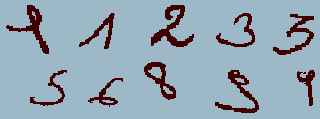 9 1 2 3 3
5 6 8 9 9